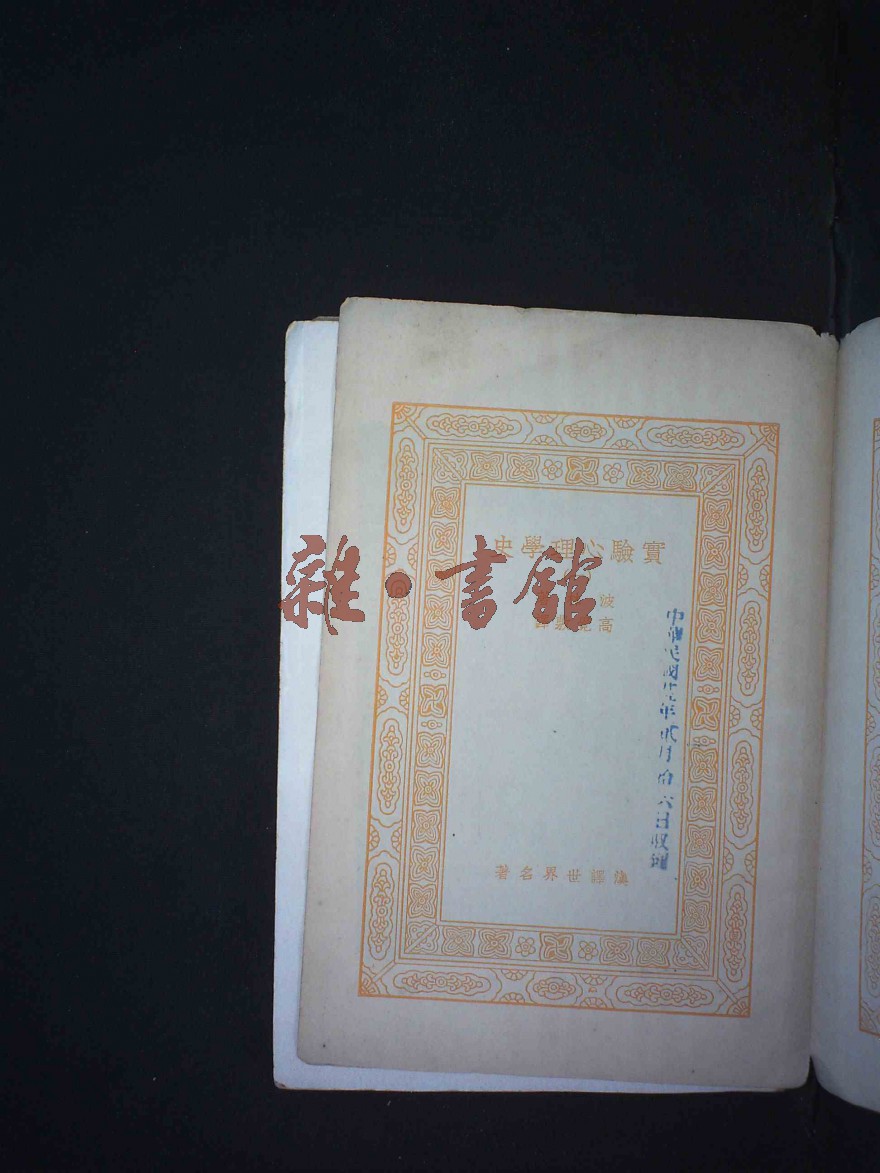 實驗心理學史
波
高
漢譯世界名著
中華民國廿五年貳月拾六日收到
雜·書館